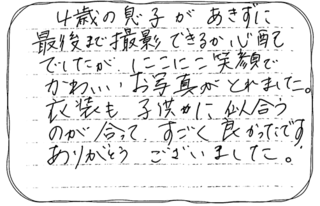 4歳の息子があきずに
最後まで撮影できるか心配
でしたが、にこにこ笑顔で
かわいいお写真がとれました。
衣装も子供かに似合う
のが合って、すごく良かったです
ありがとうございました。